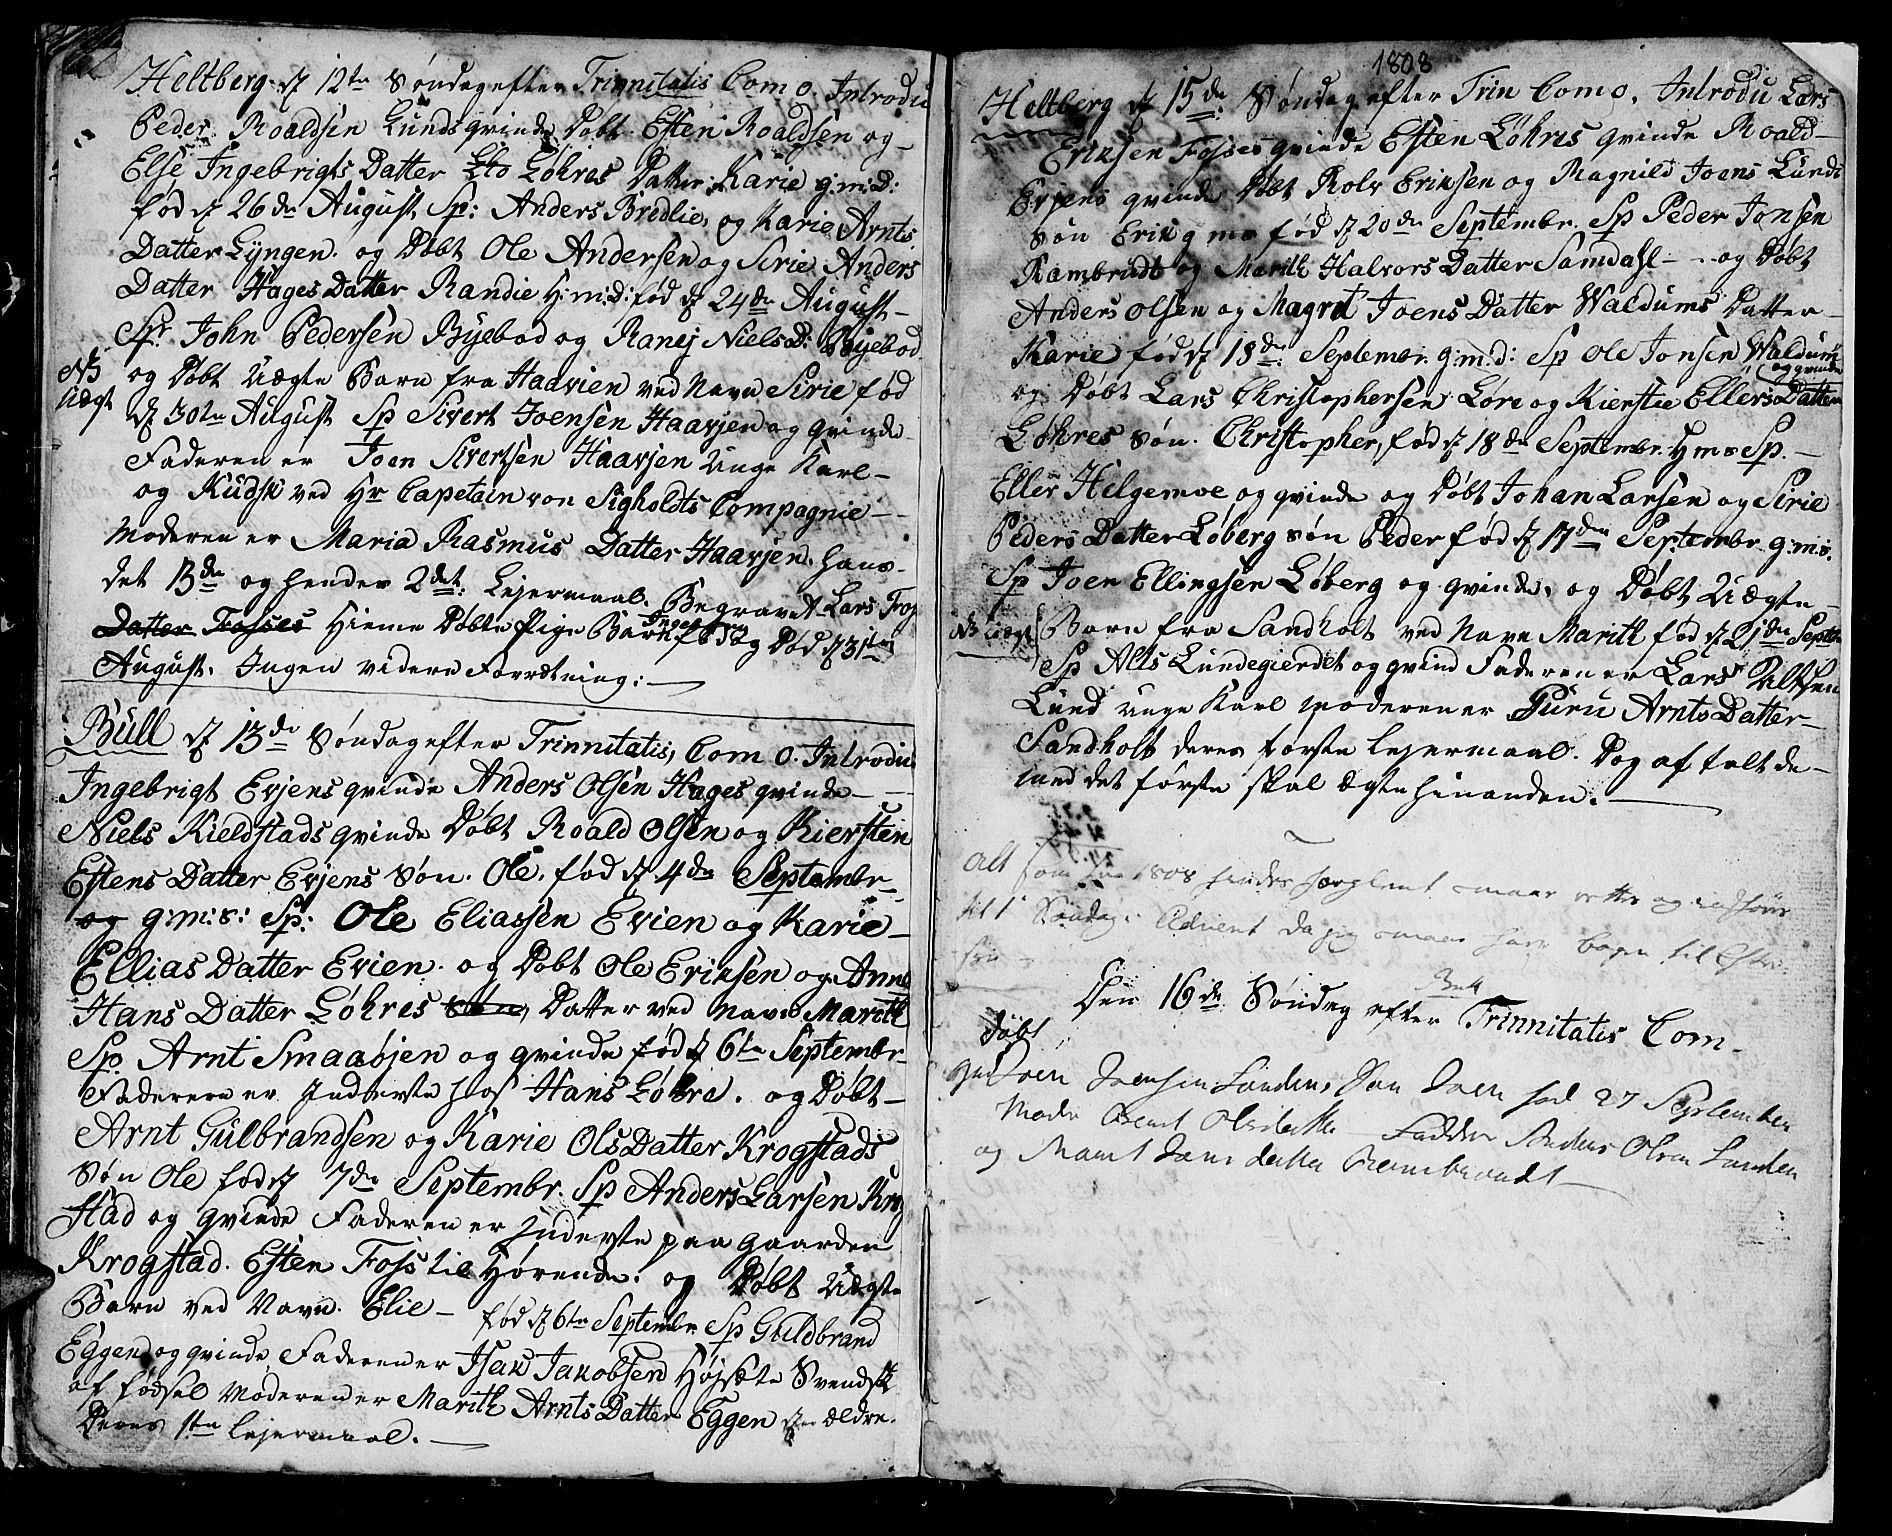 Heltberg d 12te Søndag efter Trinnitatis Com 0. Introdu
Peder Roaldsen Lunds qvinde Døbt Esten Roaldsen og
Else Ingebrigts Datter Løhres Datter Karie g:m:d:
fød d 26de August Sp: Anders Bredlie, og Karie Arnts
Datter Lyngen. og Døbt Ole Andersen og Sirie Anders
Datter Hages Datter Randie H:m:d: fød d 24de August
Sp: John Pedersen Byebod og Ranej Niels D: Byebod
NB og Døbt Uægte Barn fra Haavien ved Navn Sirie fød
Uægt d 30te August Sp Sivert Joensen Haavjen og qvinde
Faderen er Joen Sivertsen Haavjen Unge Karl
og Kudsk ved Hr Capetain von Sigholdts Compagnie
Moderen er Maria Rasmus Datter Haavjen, hans
det 13de og hendes 2det Lejermaal. Begravet Lars Fos
Datter Fosses Hieme Døbte Pige Barn fød og Død d 31te
August. Ingen videre Forretning:
Bull d 13de Søndag efter Trinnitatis, Com 0. Introdu:
Ingebrigt Evjens qvinde Anders Olsen Hages qvinde
Niels Kieldstads qvinde Døbt Roald Olsen og Kiersten
Estens Datter Evjens Søn. Ole, fød d 4de Septembr
og g:m:s: Sp: Ole Eliassen Evien og Karie
Ellias Datter Evien. og Døbt Ole Eriksen og Anne
Hans Datter Løhres Datter ved Navn Marith
Sp. Arnt Smaaøjen og qvinde fød d 6te Septembr
Faderen er Inderste hos Hans Løhre. og Døbt
Arnt Gulbrandsen og Karie Ols Datter Krogstads
Søn Ole fød d 7de Septembr. Sp Anders Larsen Krog
stad og qvinde Faderen er Inderste paa gaarden
Krogstad. Esten Foss til Hørende. og Døbt Uægte
Barn ved Navn. Elie fød d 6te Septembr Sp Guldbrand
Eggen og qvinde Faderen er Isak Jakobsen Højsæte Svendsk
af fødsel Moderen er Marith Arnts Datter Eggen ældre.
Deres 1te Lejermaal.
1808
Heltberg d 15de Søndag efter Trin Com 0. Introdu Lars
Eriksen Fosses qvinde Esten Løhris qvinde Roald
Evjens qvinde Døbt Rolv Eriksen og Magnild Joens Lunds
Søn Erik g m s fød d 20de Septembr. Sp Peder Jonsen
Rambrudt og Marith Halvors Datter Samdahl og Døbt
Anders Olsen og Magret Joens Datter Waldums Datter
Karie fød d 18de Septembr. g:m:d: Sp Ole Jonsen Waldum
og qvinde
og Døbt Lars Christophersen Løre og Kierstie Ellers Datter
Løhres Søn. Christopher, fød d 18de Septembr. H m s Sp.
Eller Helgemoe og qvinde og Døbt Johan Larsen og Sirie
Peders Datter Løberg Søn Peder fød d 17den Septembr g:m:s.
Sp Joen Ellingsen Løberg og qvinde, og Døbt Uægte
NB Uægt Barn fra Sandholt ved Navn Marith fød d 21de Septbr
Sp Alts Lundegierdet og qvind Faderen er Lars Altsen
Lund unge Karl Moderen er Guru Arnts Datter
Sandholt deres første Lejermaal. Dog aftalt de
med det første skal ægte hinanden.
Alt som for 1808 findes
til 1 Søndag i Advent da jeg
Bull
Den 16de Søndag efter Trinnitatis Com
Døbt
Joen Joensen Landens Søn Joen fød 27 September
Moder Berit Olsdatter Fadder Anders Olsen Landen
og Marit Jonsdatter Rambraudt